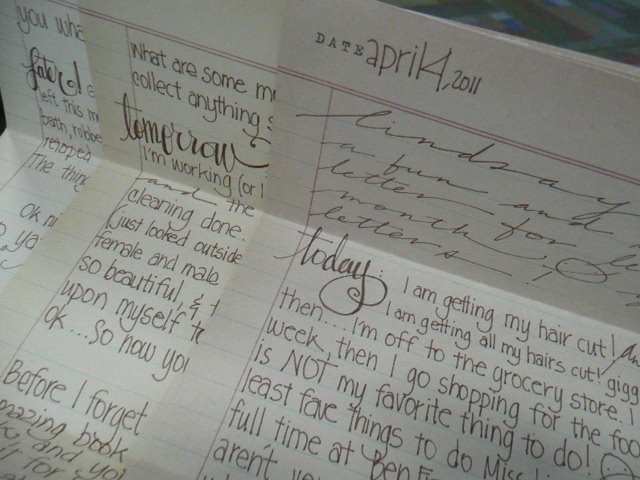 you wha
later!
left this m
bath, robbe
retoped
The thing
Ok mi
ya
What are some m
collect anything s
tomorrow
I'm working (or I
and the
cleaning done.
(just looked outside
female and male
so beautiful, & t
upon myself t
Ok...So now you
Before I forget
mazing book
and you
it for
DATE april 4, 2011
lindsay
a fun and
letter
month for le
letters!
today:
I am getting my hair cut!
I am getting all my hairs cut! gigg
then... I'm off to the grocery store. I
week, then I go shopping for the foo
is NOT my favorite thing to do!
least fave things to do Miss
full time at Ben F
arent yo